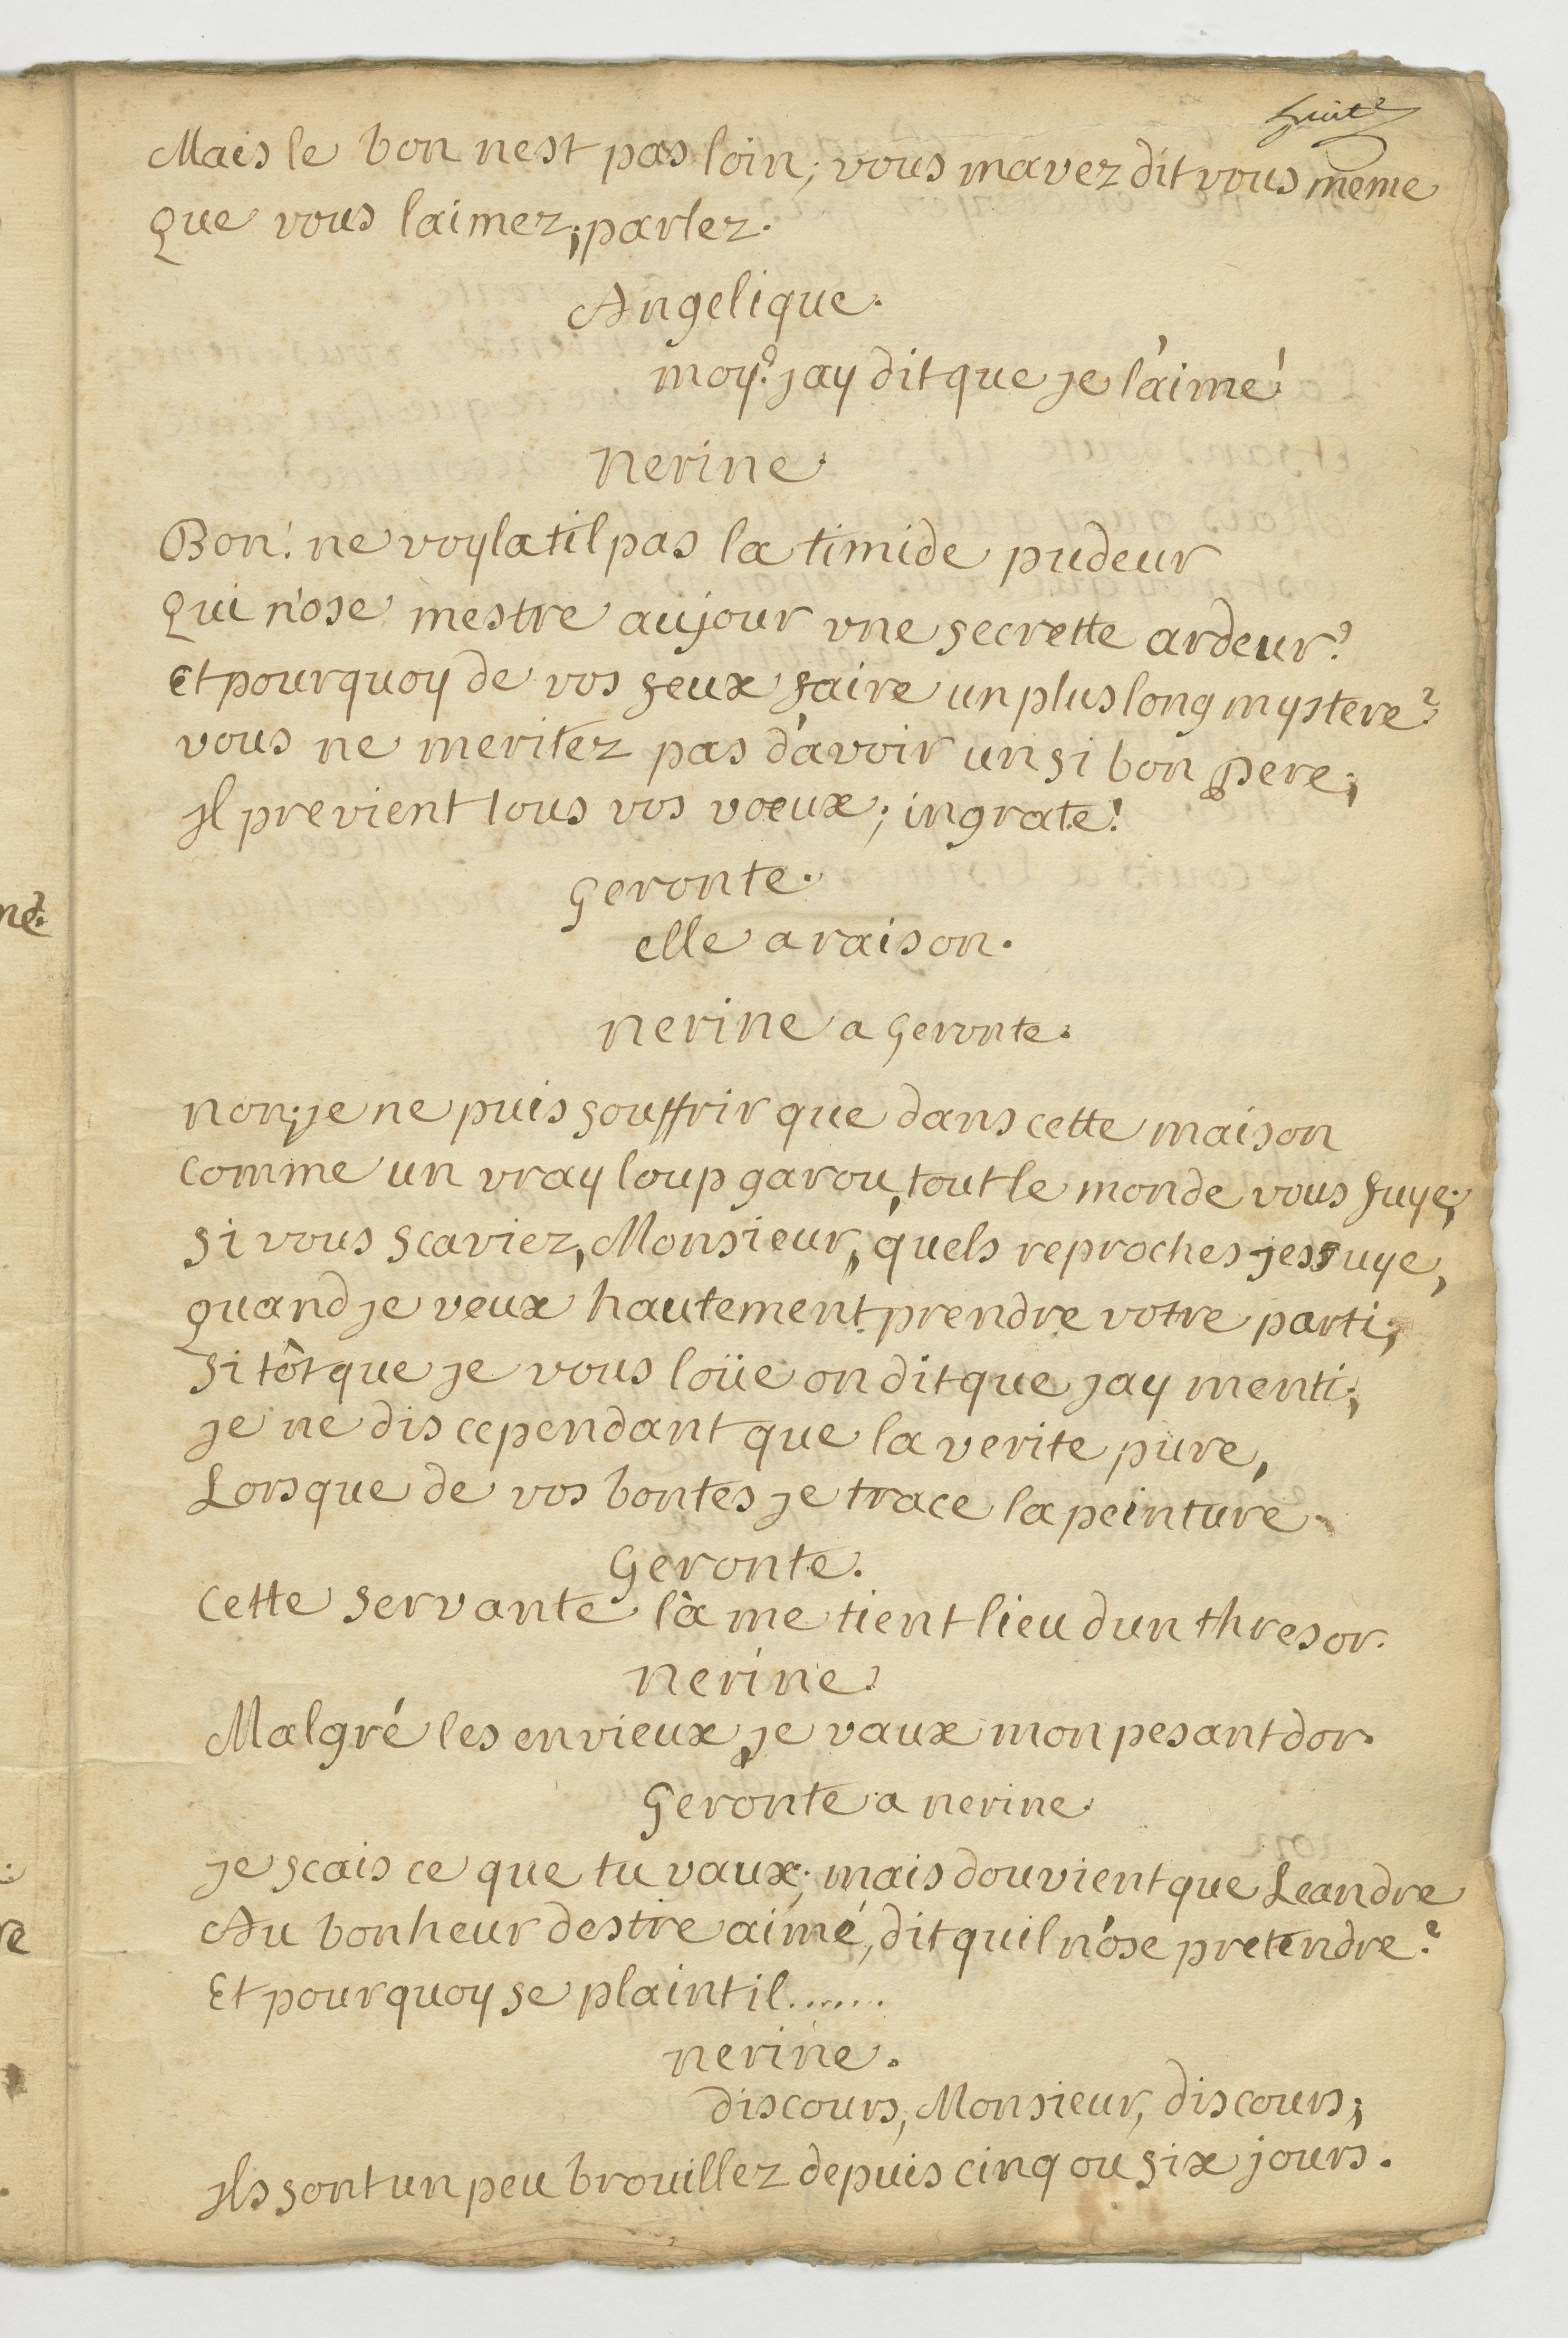 huit
Mais le bon nest pas loin; vous mavez dit vous meme
que vous laimez; parlez.
Angelique.
moy? jay dit que je l'aime!
nerine.
Bon! ne voyla til pas la timide pudeur
qui n'ose mestre au jour vne secrette ardeur?
Et pourquoy de vos feux faire un plus long mystere?
vous ne meritez pas d'avoir un si bon pere;
jl previent tous vos voeux; ingrate!
Geronte.
elle a raison.
nerine a Geronte.
non; je ne puis souffrir que dans cette maison
comme un vray loup garou, tout le monde vous fuye;
si vous scaviez, Monsieur, quels reproches jessuye,
quand je veux hautement prendre votre parti;
si tôt que je vous loüe on dit que jay menti;
je ne dis cependant que la verite pure,
Lorsque de vos bontes je trace la peinture.
Geronte.
cette servante là me tient lieu dun thresor.
nerine.
Malgré les envieux, je vaux mon pesant dor.
Geronte a nerine.
je scais ce que tu vaux; mais douvient que Leandre
Au bonheur destre aimé, dit quil n'ose pretendre?
Et pourquoy se plaint il......
nerine.
discours, Monsieur, discours;
jls sont un peu brouillez depuis cinq ou six jours.